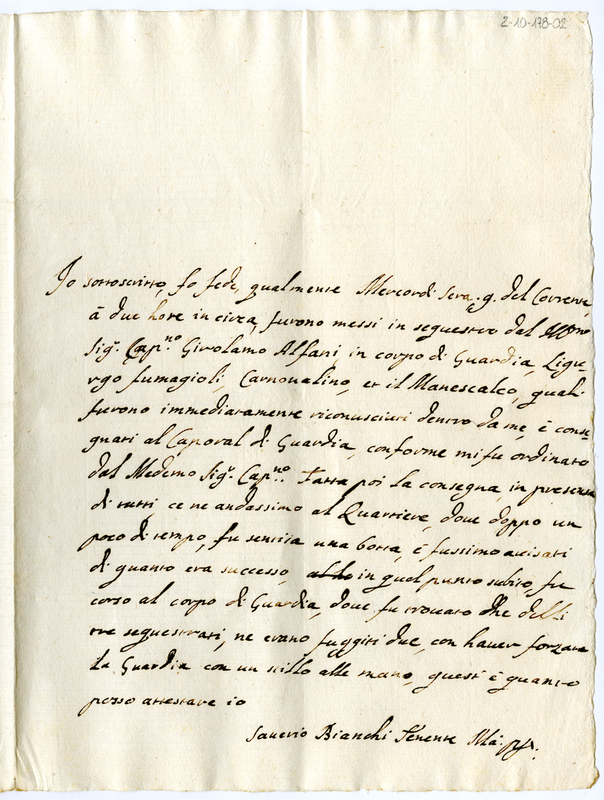 2-10-178-02
Io sottoscritto, fo fede, qualmente Mercordi sera, 9. del Corrente
à due hore in circa, furono messi in sequestro dal
Sig.r Cap.no Girolamo Alfani, in corpo di Guardia, Ligu-
rgo fumagioli, Carnoualino, et il Manescalco, quali
furono immediatamente riconusciuti dentro da me, è conse-
gnati al Caporal di Guardia, conforme mi fu ordinato
dal Medemo Sig.r Cap.no. Fatta poi la consegna, in presenza
di tutti, ce ne andassimo al Quartiere, doue doppo un
poco di tempo, fu sentita una botta, è fussimo auisati
di quanto era successo, in quel punto subito, fu
corso al corpo di Guardia, doue fu trouato che delli
tre sequestrati, ne erano fuggiti due, con hauer forzata
la Guardia con un stillo alle mano, quest' è quanto
posso attestare io
Sauerio Bianchi Tenente